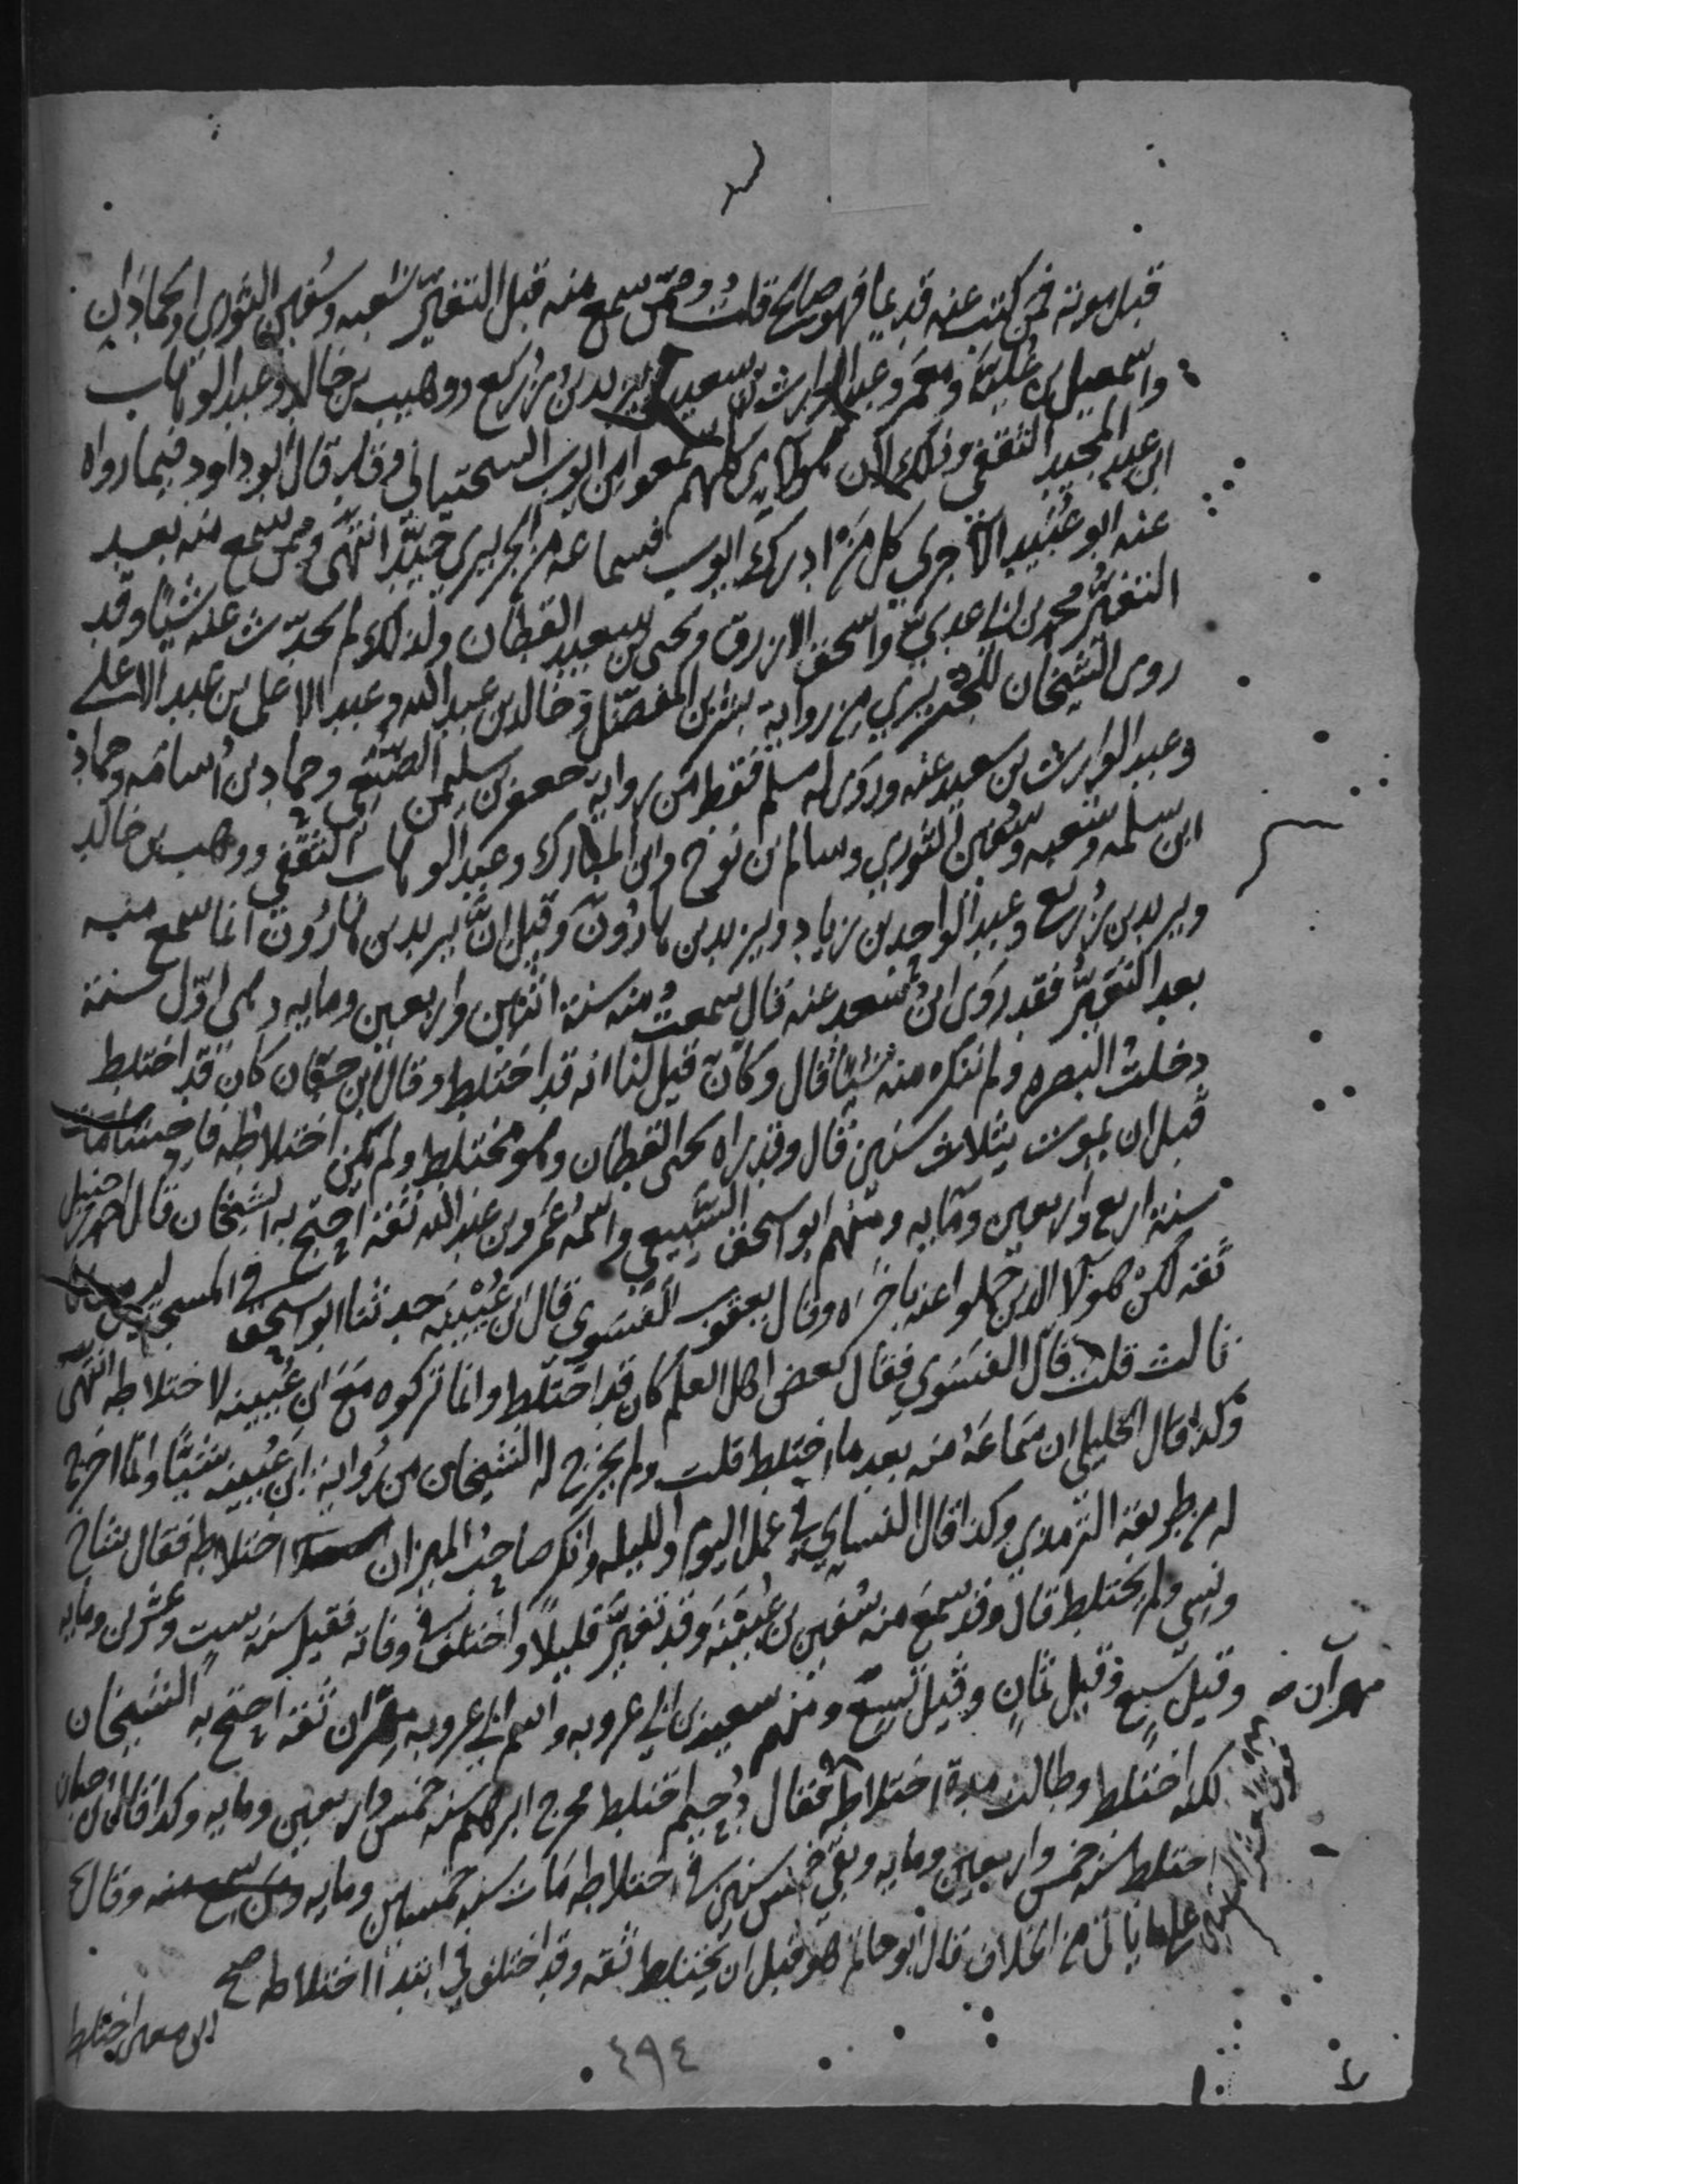 قبل موته فمن كتب عنه قديما فهو صالح قلت وممن سمع منه قبل التغير شعبه وسفين الثوري والحمادان
واسمعيل بن علية ومعمر وعبد الوارث بن سعيد ويزيد بن زريع ووهيب بن خالد وعبد الوهاب
ابن عبد المجيد الثقفي وذلك لان هولاي كلهم سمعوا من ايوب السختياني وقد قال ابو داود فيما رواه
عنه ابو عبيد الآجري كل من ادرك ايوب فسماعه من الجريري جيد انتهى وممن سمع منه بعد
التغير محمد بن ابي عدي واسحق الازرق ويحيى بن سعيد القطان ولذلك لم يحدث عنه شيئا وقد
روى الشيخان للجريري من رواية بشر بن المفضل وخالد بن عبد الله وعبد الاعلى بن عبد الاعلى
وعبد الوارث بن سعيد عنه وروى له مسلم فقط من رواية جعفر بن سليمن الضبعي وحماد بن أسامه وحماد
ابن سلمه وشعبه وسفين الثوري وسالم بن نوح وابن المبارك وعبد الوهاب الثقفي ووهيب بن خالد
ويزيد بن زريع وعبد الواحد بن زياد ويزيد بن هارون وقيل ان يزيد بن هارون انما سمع منه
بعد التغير فقد روى ابن سعد عنه قال سمعت منه سنة اثنتين واربعين ومايه وهي اول سنة
دخلت البصره ولم ننكر منه شيئا قال وكان قيل لنا انه قد اختلط وقال ابن حبان كان قد اختلط
قبل ان يموت بثلاث سنين قال وقد راه يحيى القطان وهو مختلط ولم يكن اختلاطه فاحشا مات
سنة اربع واربعين ومايه ومنهم ابو اسحق السبيعي واسمه عمرو بن عبد الله ثقة احتج به الشيخان قال احمد بن حنبل
ثقه لكن هولا الذين حملوا عنه باخره وقال يعقوب الفسوي قال ابن عيينه حدثنا ابو اسحق في المسجد ليس معنا
ثالث قلت قال الفسوي فقال بعض اهل العلم كان قد اختلط وانما تركوه مع ابن عيينه لاختلاطه انتهى
وكذا قال الخليلي ان سماعه منه بعد ما اختلط قلت ولم يخرج له الشيخان من رواية ابن عيينه شيئا وانما اخرج
له من طريقه الترمذي وكذا قال النساي في عمل اليوم والليله وانكر صاحب الميزان اختلاطه فقال شاخ
ونسي ولم يختلط قال وقد سمع منه سفين بن عيينة وقد تغير قليلا واختلف في وفاته فقيل سنة ست وعشرين ومايه
وقيل سبع وقيل ثمان وقيل تسع ومنهم سعيد بن ابي عروبه واسم ابي عروبه مهران ثقة احتج به الشيخان
مهران
لكنه اختلط وطالت مدة اختلاطه فقال دحيم اختلط مخرج ابراهيم سنه خمس واربعين ومايه وكذا قال ابن حبان
اختلط سنه خمس واربعين ومايه وبقي خمس سنين في اختلاطه مات سنه خمسين ومايه وقال
على ما ياتي من الخلاف قال ابو حاتم هو قبل ان يختلط ثقه وقد اختلف في ابتدا اختلاطه صح
ابن معين اختلط
٤٩٤